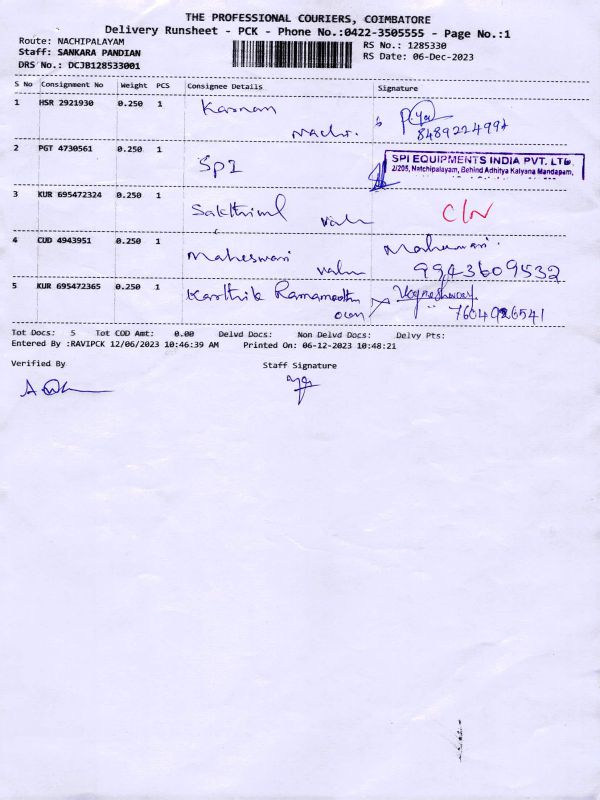 THE PROFESSIONAL COURIERS, COIMBATORE
Delivery Runsheet - PCK - Phone No.:0422-3505555 - Page No.:1
Route: NACHIPALAYAM
RS No.: 1285330
Staff: SANKARA PANDIAN
RS Date: 06-Dec-2023
DRS No.: DCJB128533001
S No Consignment No Weight PCS Consignee Details Signature
1 HSR 2921930 0.250 1 Kannan
8489224992
2 PGT 4730561 0.250 1 SPI
SPI EQUIPMENTS INDIA PVT. LTD.
2/205, Natchipalayam, Behind Adhitya Kalyana Mandapam,
3 KUR 695472324 0.250 1 C/N
4 CUD 4943951 0.250 1 Maheswari Maheswari
9943609532
5 KUR 695472365 0.250 1 Karthik Ramamoorthy
7604926541
Tot Docs: 5 Tot COD Amt: 0.00 Delvd Docs: Non Delvd Docs: Delvy Pts:
Entered By :RAVIPCK 12/06/2023 10:46:39 AM Printed On: 06-12-2023 10:48:21
Verified By Staff Signature